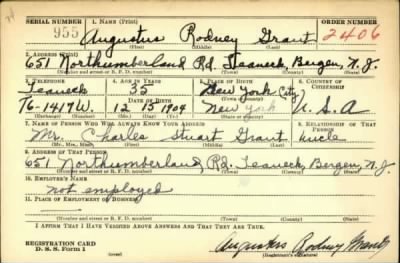 SERIAL NUMBER 1. NAME (Print) ORDER NUMBER
955 Augustus Rodney Grant 2406
(First) (Middle) (Last)
2. ADDRESS (Print)
651 Northumberland Rd. Teaneck, Bergen, N.J.
(Number and street or R. F. D. number) (Town) (County) (State)
3. TELEPHONE 4. AGE IN YEARS 5. PLACE OF BIRTH 6. COUNTRY OF CITIZENSHIP
Teaneck 35 New York City
DATE OF BIRTH (Town or county)
T6-1419W. 12 15 1904 New York U.S.A
(Exchange) (Number) (Mo.) (Day) (Yr.) (State or country)
7. NAME OF PERSON WHO WILL ALWAYS KNOW YOUR ADDRESS 8. RELATIONSHIP OF THAT PERSON
Mr. Charles Stuart Grant Uncle
(Mr., Mrs., Miss) (First) (Middle) (Last)
9. ADDRESS OF THAT PERSON
651 Northumberland, Rd. Teaneck, Bergen, N.J.
(Number and street or R. F. D. number) (Town) (County) (State)
10. EMPLOYER'S NAME
not employed
11. PLACE OF EMPLOYMENT OR BUSINESS
(Number and street or R. F. D. number) (Town) (County) (State)
I AFFIRM THAT I HAVE VERIFIED ABOVE ANSWERS AND THAT THEY ARE TRUE.
REGISTRATION CARD Augustus Rodney Grant
D. S. S. Form 1 (Registrant's signature)